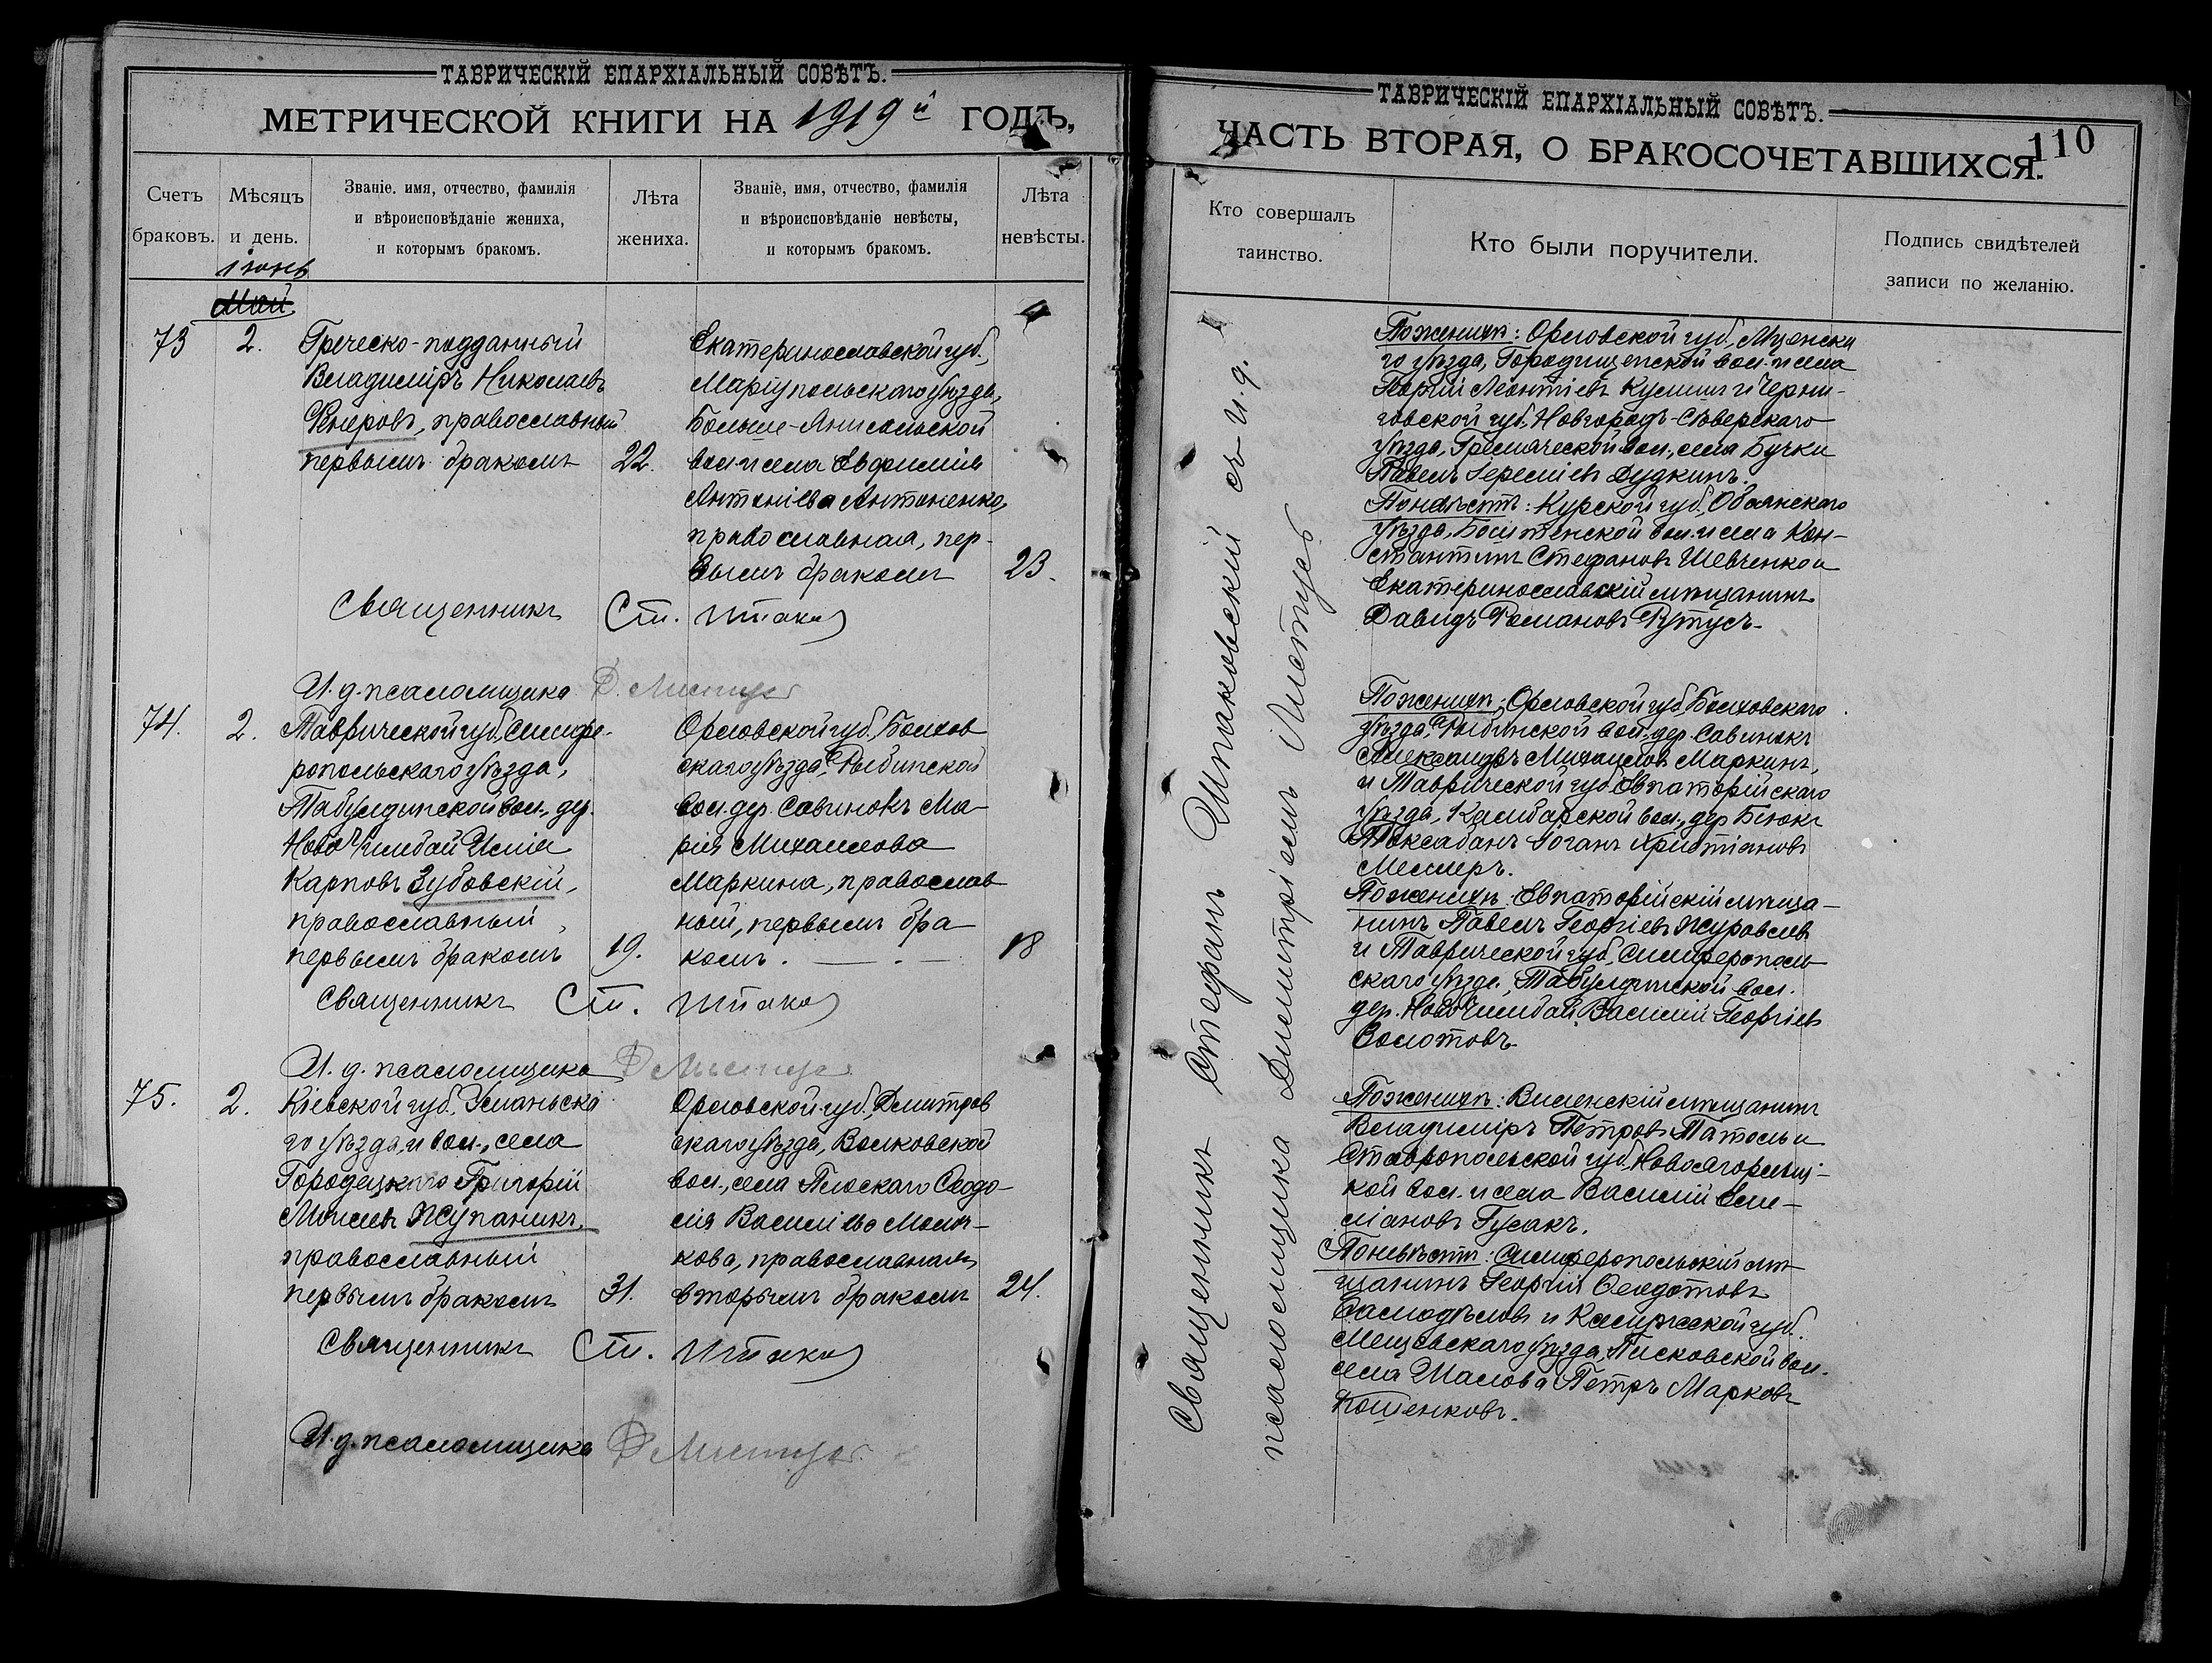 ТАВРИЧЕСКІЙ ЕПАРХІАЛЬНЫЙ СОВѢТЪ.
МЕТРИЧЕСКОЙ КНИГИ НА 1919й ГОДЪ,
Счетъ браковъ.
Мѣсяцъ и день.
Званіе. имя, отчество, фамилія
и вѣроисповѣданіе жениха,
и которымъ бракомъ.
Лѣта жениха.
Званіе, имя, отчество, фамилія
и вѣроисповѣданіе невѣсты,
и которымъ бракомъ.
Лѣта невѣсты.
Іюнь
Май.
73
2.
Греческо-подданный
Владиміръ Николаевъ
православный
первымъ бракомъ
22.
Екатеринославской губ.,
Маріупольскаго уѣзда,
Больше-Янисольской
вол. и села Евфимія
Антоніева Антоненко,
православная, пер-
вымъ бракомъ
23.
Священникъ Ст. Шпако
И. д. псаломщика Д. Листцев
74.
2.
Таврической губ. Симфе-
ропольскаго уѣзда,
Табулдинской вол., дер.
Ново Чимбай Илія
Карповъ Зубовскій,
православный,
первымъ бракомъ
19.
Орловской губ. Болхов
скаго уѣзда, Рыбинской
вол. дер. Савинокъ Ма-
рія Михаилова
Маркина, православ
ной, первымъ бра
комъ. — . —
18
Священникъ Ст. Шпако
И. д. псаломщика Д Листцев
75.
2.
Кіевской губ., Уманьска
го уѣзда, и вол., села
Городецкаго Григорій
Моисеевъ Жупаникъ,
православный
первымъ бракомъ
31.
Орловской губ., Дмитров
скаго уѣзда, Волковской
вол., села Плоскаго Феодо-
сія Василіева
кова, православная
вторымъ бракомъ
24.
Священникъ Ст. Шпако
И. д. псаломщика Д Листцев
ТАВРИЧЕСКІЙ ЕПАРХІАЛЬНЫЙ СОВѢТЪ.
ЧАСТЬ ВТОРАЯ, О БРАКОСОЧЕТАВШИХСЯ.
110
Кто совершалъ
таинство.
Кто были поручители.
Подпись свидѣтелей
записи по желанію.
Священникъ Стефанъ Шпаковскій съ и. д.
псаломщика Димитріемъ Листцев
По женихѣ: Орловской губ., Мценска
го уѣзда, Городищенской вол. и села
Георгій Леонтіевъ и Черни-
говской губ. Новгородъ-Сѣверскаго
уѣзда, Гремячской вол., села Бучки
Павелъ Іереміевъ Дудкинъ.
По невѣстѣ: Курской губ., Обоянскаго
уѣзда, вол. и села Кон-
стантинъ Стефановъ Шевченко и
Екатеринославскій мѣщанинъ
Давидъ Романовъ Рутусъ.
По женихѣ: Орловской губ Болховскаго
уѣзда, Рыбинской вол. дер. Савинокъ
Александръ Михаиловъ Маркинъ,
и Таврической губ Евпаторійскаго
уѣзда, Камбарской вол., дер Біюкъ
Токсабанъ Іоганъ Христіановъ
По женихѣ: Евпаторійскій мѣща-
нинъ Павелъ Георгіевъ Журавлевъ
и Таврической губ., Симферополь
скаго уѣзда, Табулдинской вол.
дер. Ново Чимбай Василій Георгіевъ
Золотовъ.
По женихѣ: Виленскій мѣщанинъ
Владиміръ Петровъ и
Ставропольской губ.
кой вол. и села Василій Еме-
ліановъ Гусакъ.
По невѣстѣ: Симферопольскій мѣ
щанинъ Георгій Феодотовъ
Самодѣловъ и Калужской губ.
Мещовскаго уѣзда, вол.
села Шалова Петръ Марковъ
Кошенковъ.